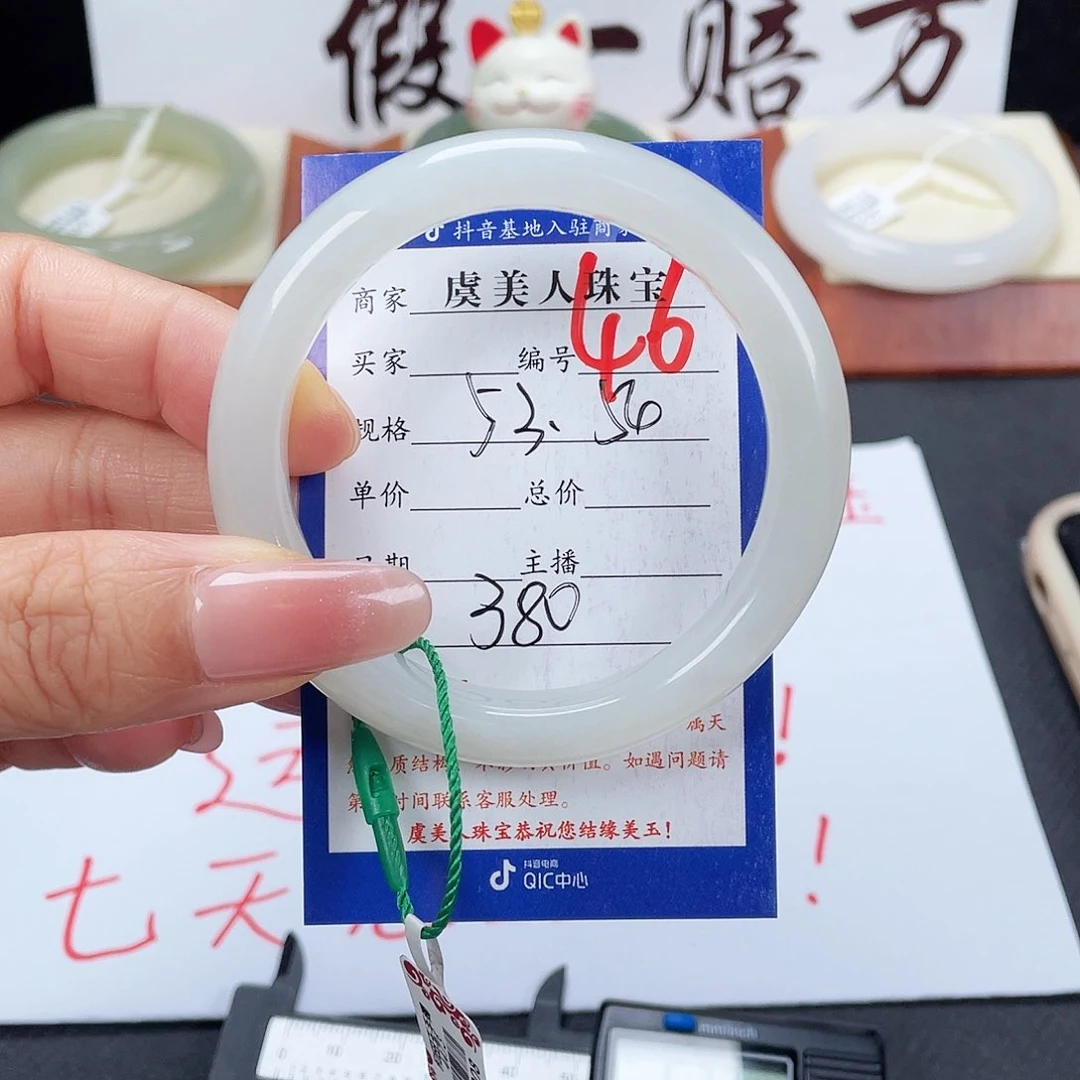 假一赔万
抖音基地入驻商家
商家 虞美人珠宝
买家 编号 46
规格 53.56
单价 总价
日期 主播
380
属天
质结构 价值。如遇问题请
第 时间联系客服处理。
虞美人珠宝恭祝您结缘美玉!
抖音电商
QIC中心
!
七天 !
mm/inch
0 10 40 50